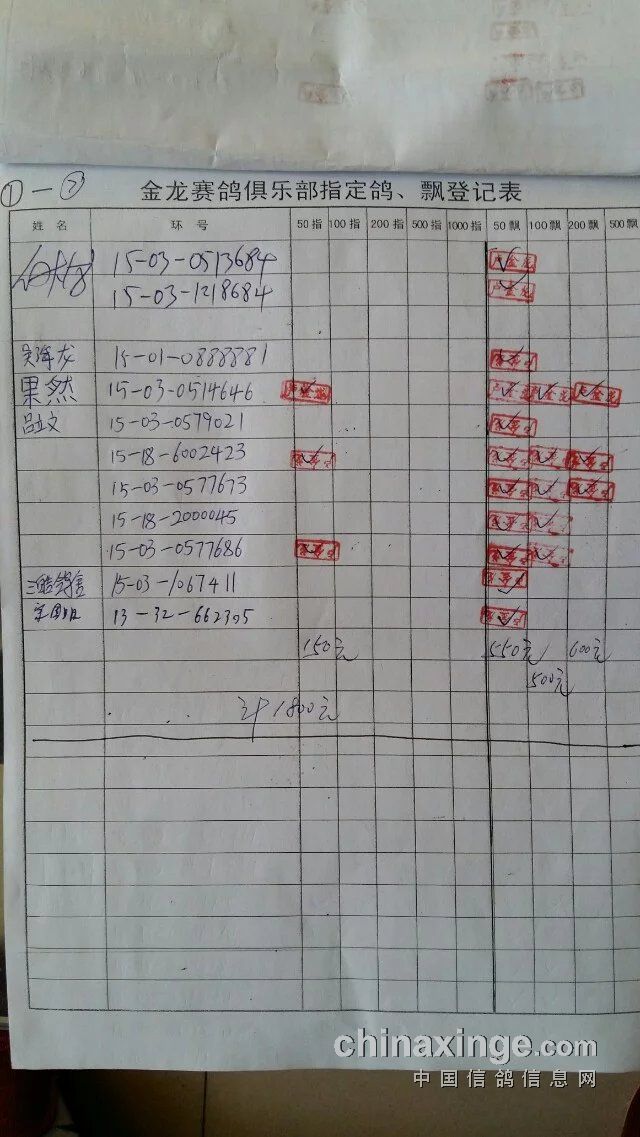 ①一②
金龙赛鸽俱乐部指定鸽、飘登记表
姓名 环号 50指 100指 200指 500指 1000指 50飘 100飘 200飘 500飘
15-03-0513684
15-03-1218684
15-01-0888881
果然 15-03-0514646
吕立文 15-03-0579021
15-18-6002423
15-03-0577673
15-18-2000045
15-03-0577686
15-03-1067411
13-32-662305
150元 550元 600元
500元
计1800元
chinaxinge.com
中国信鸽信息网